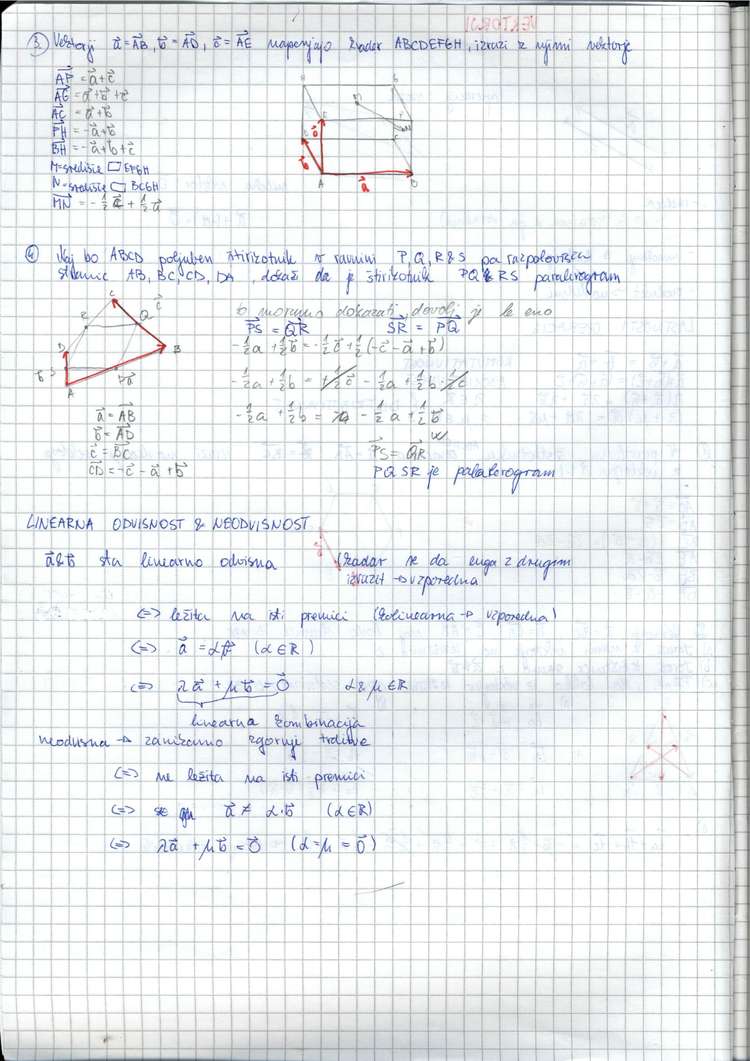 VEKTORJI
3. Vektorji a⃗=AB⃗, b⃗=AD⃗, c⃗=AE⃗ napenjajo kvader ABCDEFGH, izrazi z njimi vektorje
AF⃗ = a⃗+c⃗
AG⃗ = a⃗+b⃗+c⃗
AC⃗ = a⃗+b⃗
FH⃗ = -a⃗+b⃗
BH⃗ = -a⃗+b⃗+c⃗
M-središče ▱ EFGH
N-središče ▱ BCGH
MN⃗ = -½c⃗ + ½a⃗
A a⃗ B b⃗ c⃗
4. Naj bo ABCD poljuben štirikotnik v ravnini P, Q, R & S pa razpolovišča
stranic AB, BC, CD, DA, dokaži da je štirikotnik PQRS paralelogram
to moramo dokazati, dovolj je le eno
PS⃗ = QR⃗ SR⃗ = PQ⃗
-½a + ½b⃗ = -½c⃗ + ½(-c⃗ - a⃗ + b⃗)
-½a + ½b = +½c⃗ - ½a + ½b - ½c
-½a + ½b = -½a + ½b⃗
C c⃗ R Q D B b⃗ S A P a⃗
a⃗ = AB⃗
b⃗ = AD⃗
c⃗ = BC⃗
CD⃗ = -c⃗ - a⃗ + b⃗
PS⃗ = QR⃗
PQSR je palalerogram
LINEARNA ODVISNOST & NEODVISNOST
a⃗ & b⃗ sta linearno odvisna (kadar se da enga z drugim
izrazit → vzporedna
⇔ ležita na isti premici (kolinearna → vzporedna)
⇔ a⃗ = αb⃗ (α∈R)
⇔ λa⃗ + μb⃗ = 0⃗ α & μ ∈R
linearna kombinacija
neodvisna → zanikamo zgornje trditve
⇔ ne ležita na isti premici
⇔ a⃗ ≠ α·b⃗ (α∈R)
⇔ λa⃗ + μb⃗ = 0⃗ (α=μ = 0⃗)